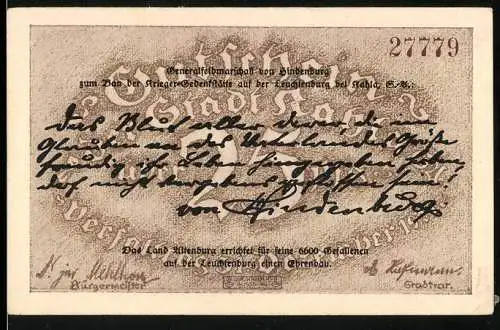 27779
Gutschein
Generalfeldmarschall von Hindenburg
zum Bau der Krieger-Gedenkstätte auf der Leuchtenburg bei Kahla, S.-A.:
Stadt Kahla
Das Blut aller derer, die im
Glauben an des Vaterlandes Größe
freudig ihr Leben hingegeben haben,
darf nicht vergebens geflossen sein.
25
von Hindenburg
Das Land Altenburg errichtet für seine 6600 Gefallenen
auf der Leuchtenburg einen Ehrenbau.
Bürgermeister
Stadtrat.